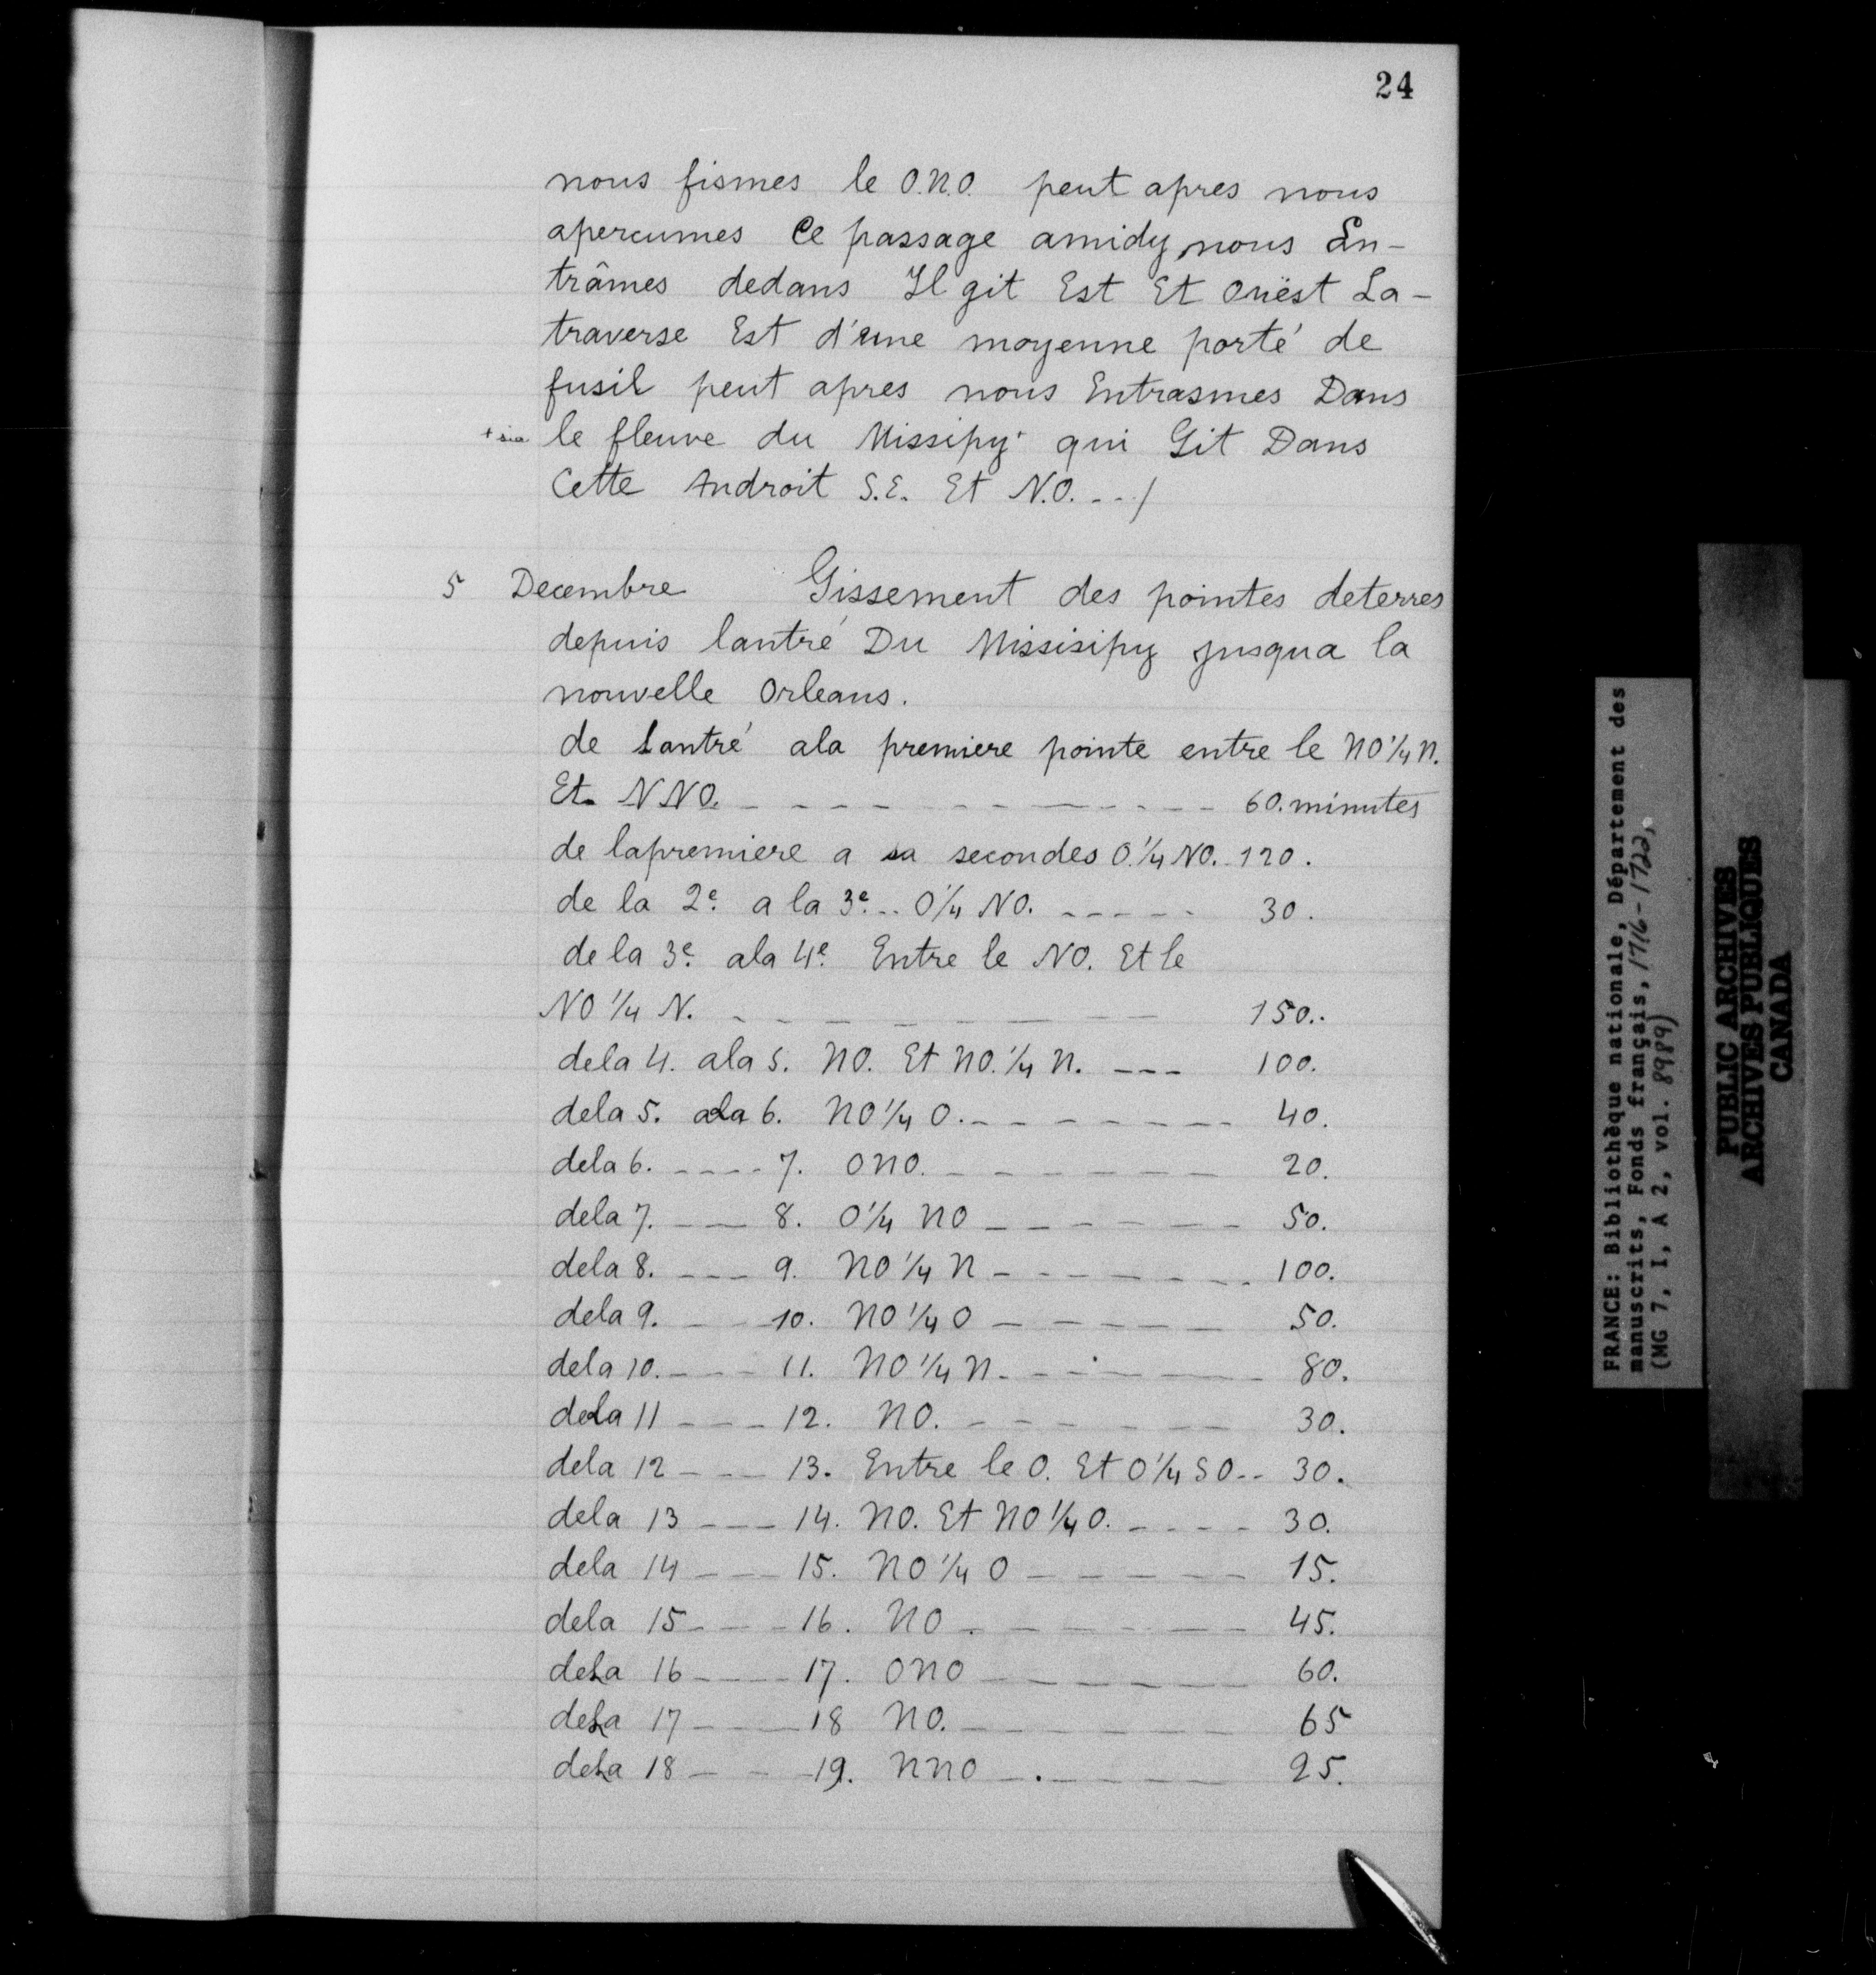 24
nous fismes le O.N.O. peut apres nous
apercumes Ce passage amidy, nous En-
trâmes dedans Il git Est Et Ouëst La-
traverse Est d'une moyenne porté de
fusil peut apres nous Entrasmes Dans
+ sic le fleuve du Missipy+ qui Git Dans
Cette Androit S.E. Et N.O. - - /
5 Decembre Gissement des pointes deterres
depuis lantré Du Missisipy jusqua la
nouvelle Orleans.
de Lantré ala premiere pointe entre le NO 1/4 N.
Et NNO. - - - - - - - - - - - 60. minutes
de lapremiere a sa secondes O. 1/4 NO. 120.
de la 2e. a la 3e. .. O 1/4 NO. - - - - - 30.
de la 3e. ala 4e. Entre le NO. Et le
NO 1/4 N. - - - - - - - - - 150..
dela 4. ala 5. NO. Et NO. 1/4 N. - - - 100.
dela 5. ala 6. NO 1/4 O. - - - - - - - 40.
dela 6. - - - - 7. ONO. - - - - - - - 20.
dela 7. - - - 8. O 1/4 NO - - - - - - - 50.
dela 8. - - - 9. NO 1/4 N - - - - - - - 100.
dela 9. - - - 10. NO 1/4 O - - - - - - 50.
dela 10. - - - 11. NO 1/4 N. - - - - - - 80.
dela 11 - - - 12. NO. - - - - - - - 30.
dela 12 - - - 13. Entre le O. Et O 1/4 SO - - 30.
dela 13 - - - 14. NO. Et NO 1/4 O. - - - - 30.
dela 14 - - - 15. NO 1/4 O - - - - - - 15.
dela 15 - - - 16. NO - - - - - - - 45.
dela 16 - - - 17. ONO - - - - - - - 60.
dela 17 - - - 18 NO. - - - - - - - 65
dela 18 - - - 19. NNO - - - - - - 25.
FRANCE: Bibliothèque nationale, Département des
manuscrits, Fonds français, 1716-1722,
(MG 7, I, A 2, vol. 8989)
PUBLIC ARCHIVES
ARCHIVES PUBLIQUES
CANADA